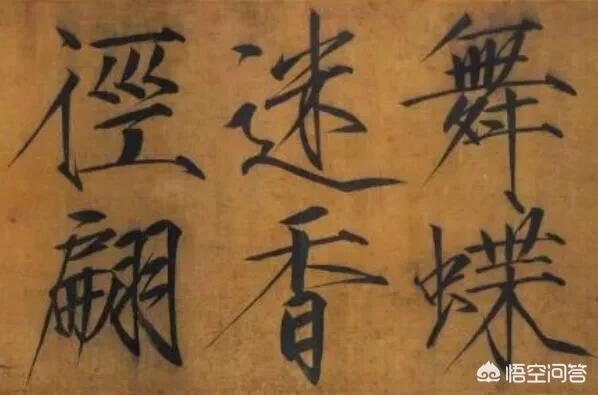 舞蝶
迷香
徑翩
悟空问答